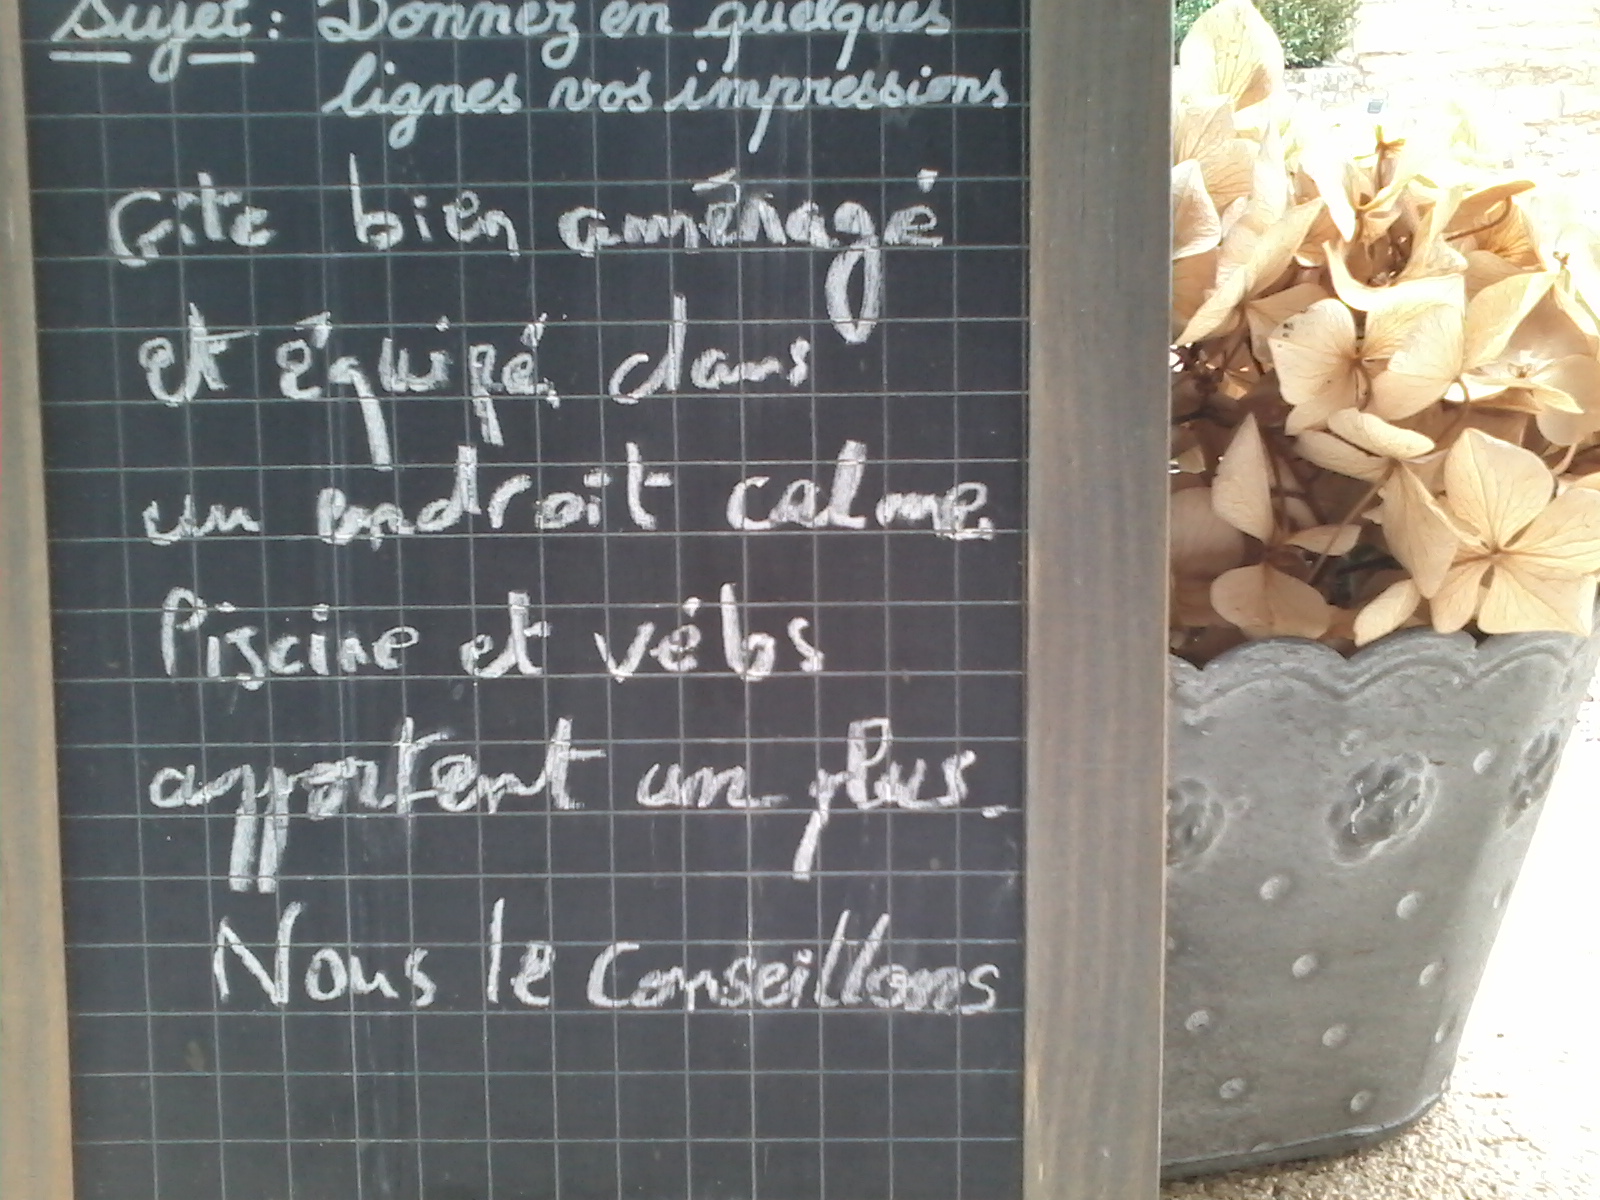 Sujet : Donnez en quelques
lignes vos impressions
Gîte bien aménagé
et équipé dans
un endroit calme
Piscine et vélos
apportent un plus.
Nous le conseillons